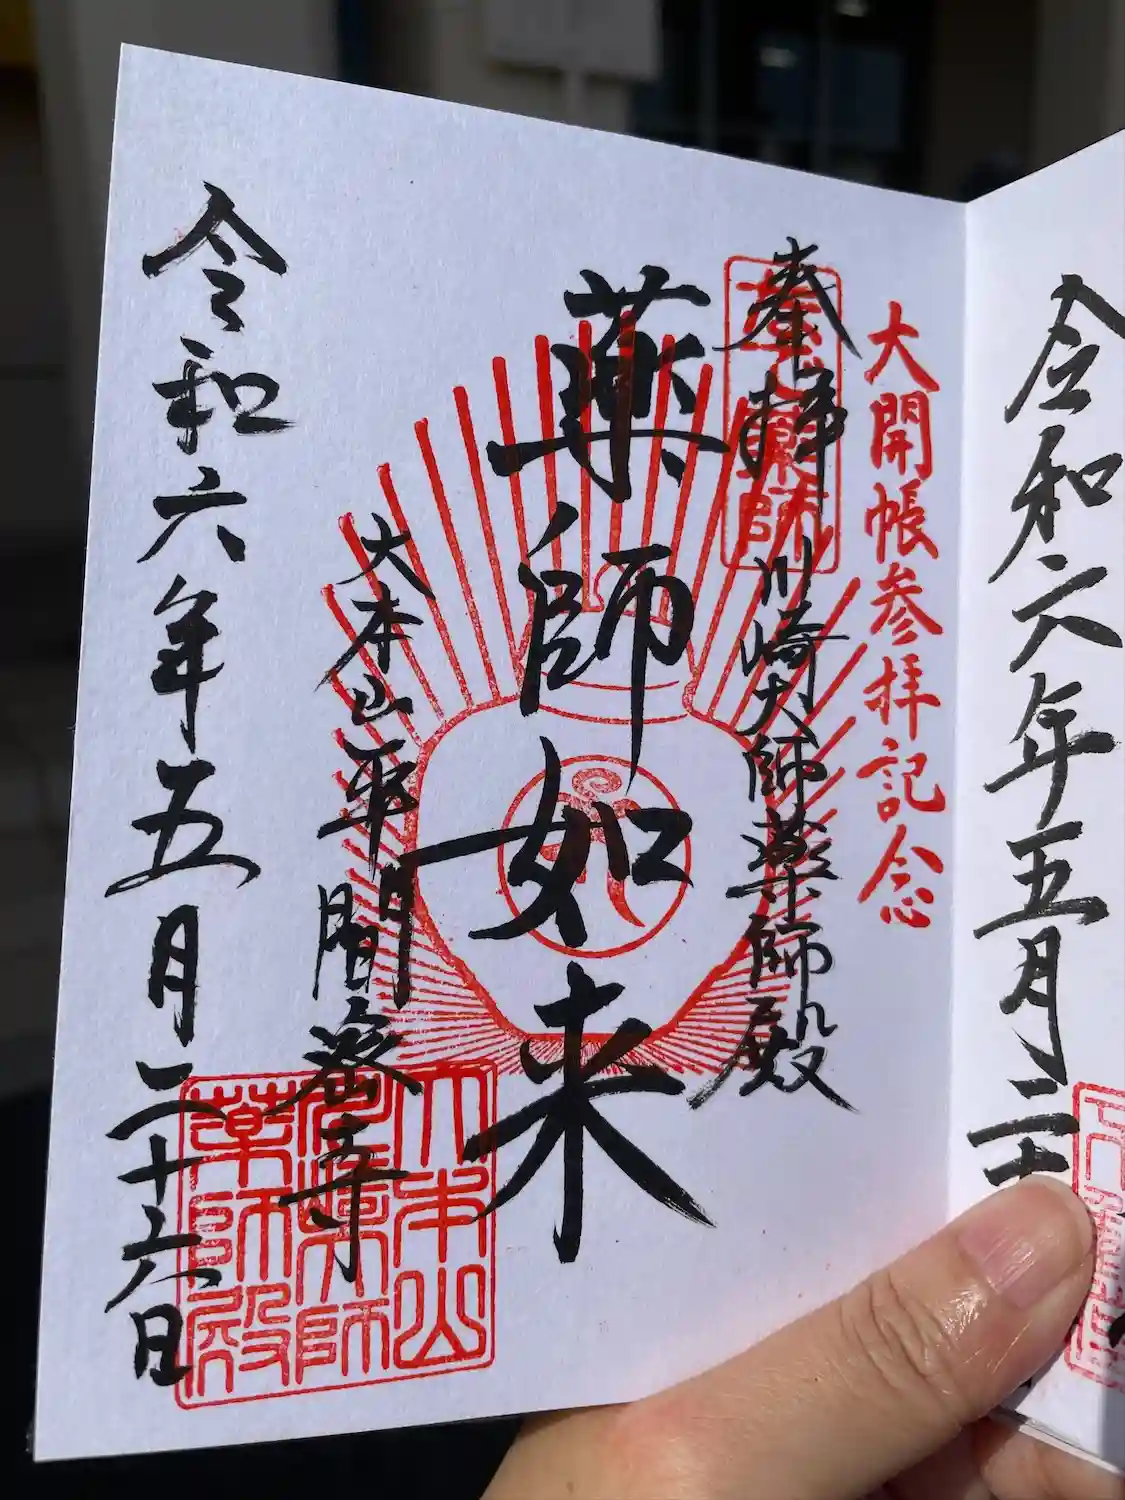 令和六年五月二十
大開帳参拝記念
奉拝
薬師
川崎大師薬師殿
薬師如来
大本山平間密寺
大本山
薬師
薬師殿
令和六年五月二十六日